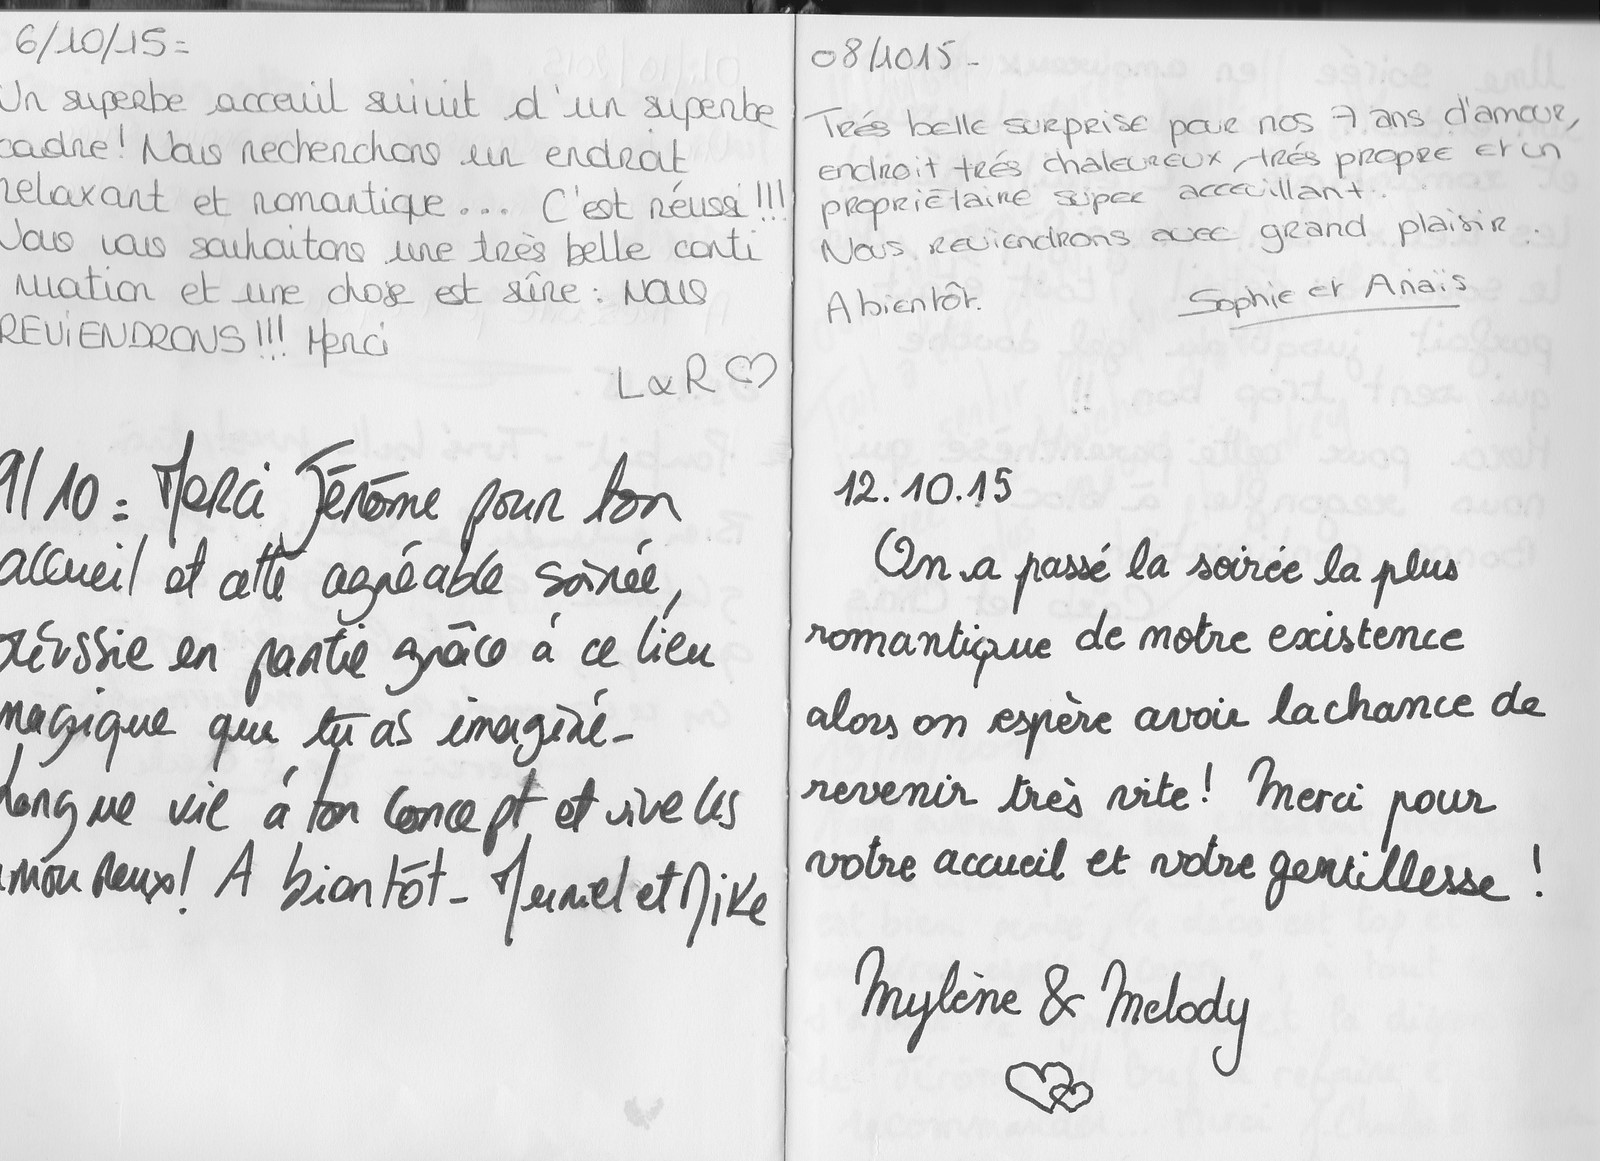 6/10/15=
Un superbe acceuil suivit d'un superbe
cadre! Nous recherchons un endroit
relaxant et romantique... C'est réussi!!!
Nous vous souhaitons une très belle conti
nuation et une chose est sûre: NOUS
REVIENDRONS!!! Merci
L&R ♡
9/10= Merci Jérôme pour ton
accueil et cette agréable soirée,
réussie en partie grâce à ce lieu
magique que tu as imaginé-
Longue vie à ton concept et vive les
amoureux! A bientôt- Muriel et Mike
08/1015-
Trés belle surprise pour nos 7 ans d'amour,
endroit trés chaleureux, trés propre et un
propriétaire super acceuillant.
Nous reviendrons avec grand plaisir.
A bientôt. Sophie et Anaïs
12.10.15
On a passé la soirée la plus
romantique de notre existence
alors on espère avoir la chance de
revenir très vite! Merci pour
votre accueil et votre gentillesse!
Mylène & Melody